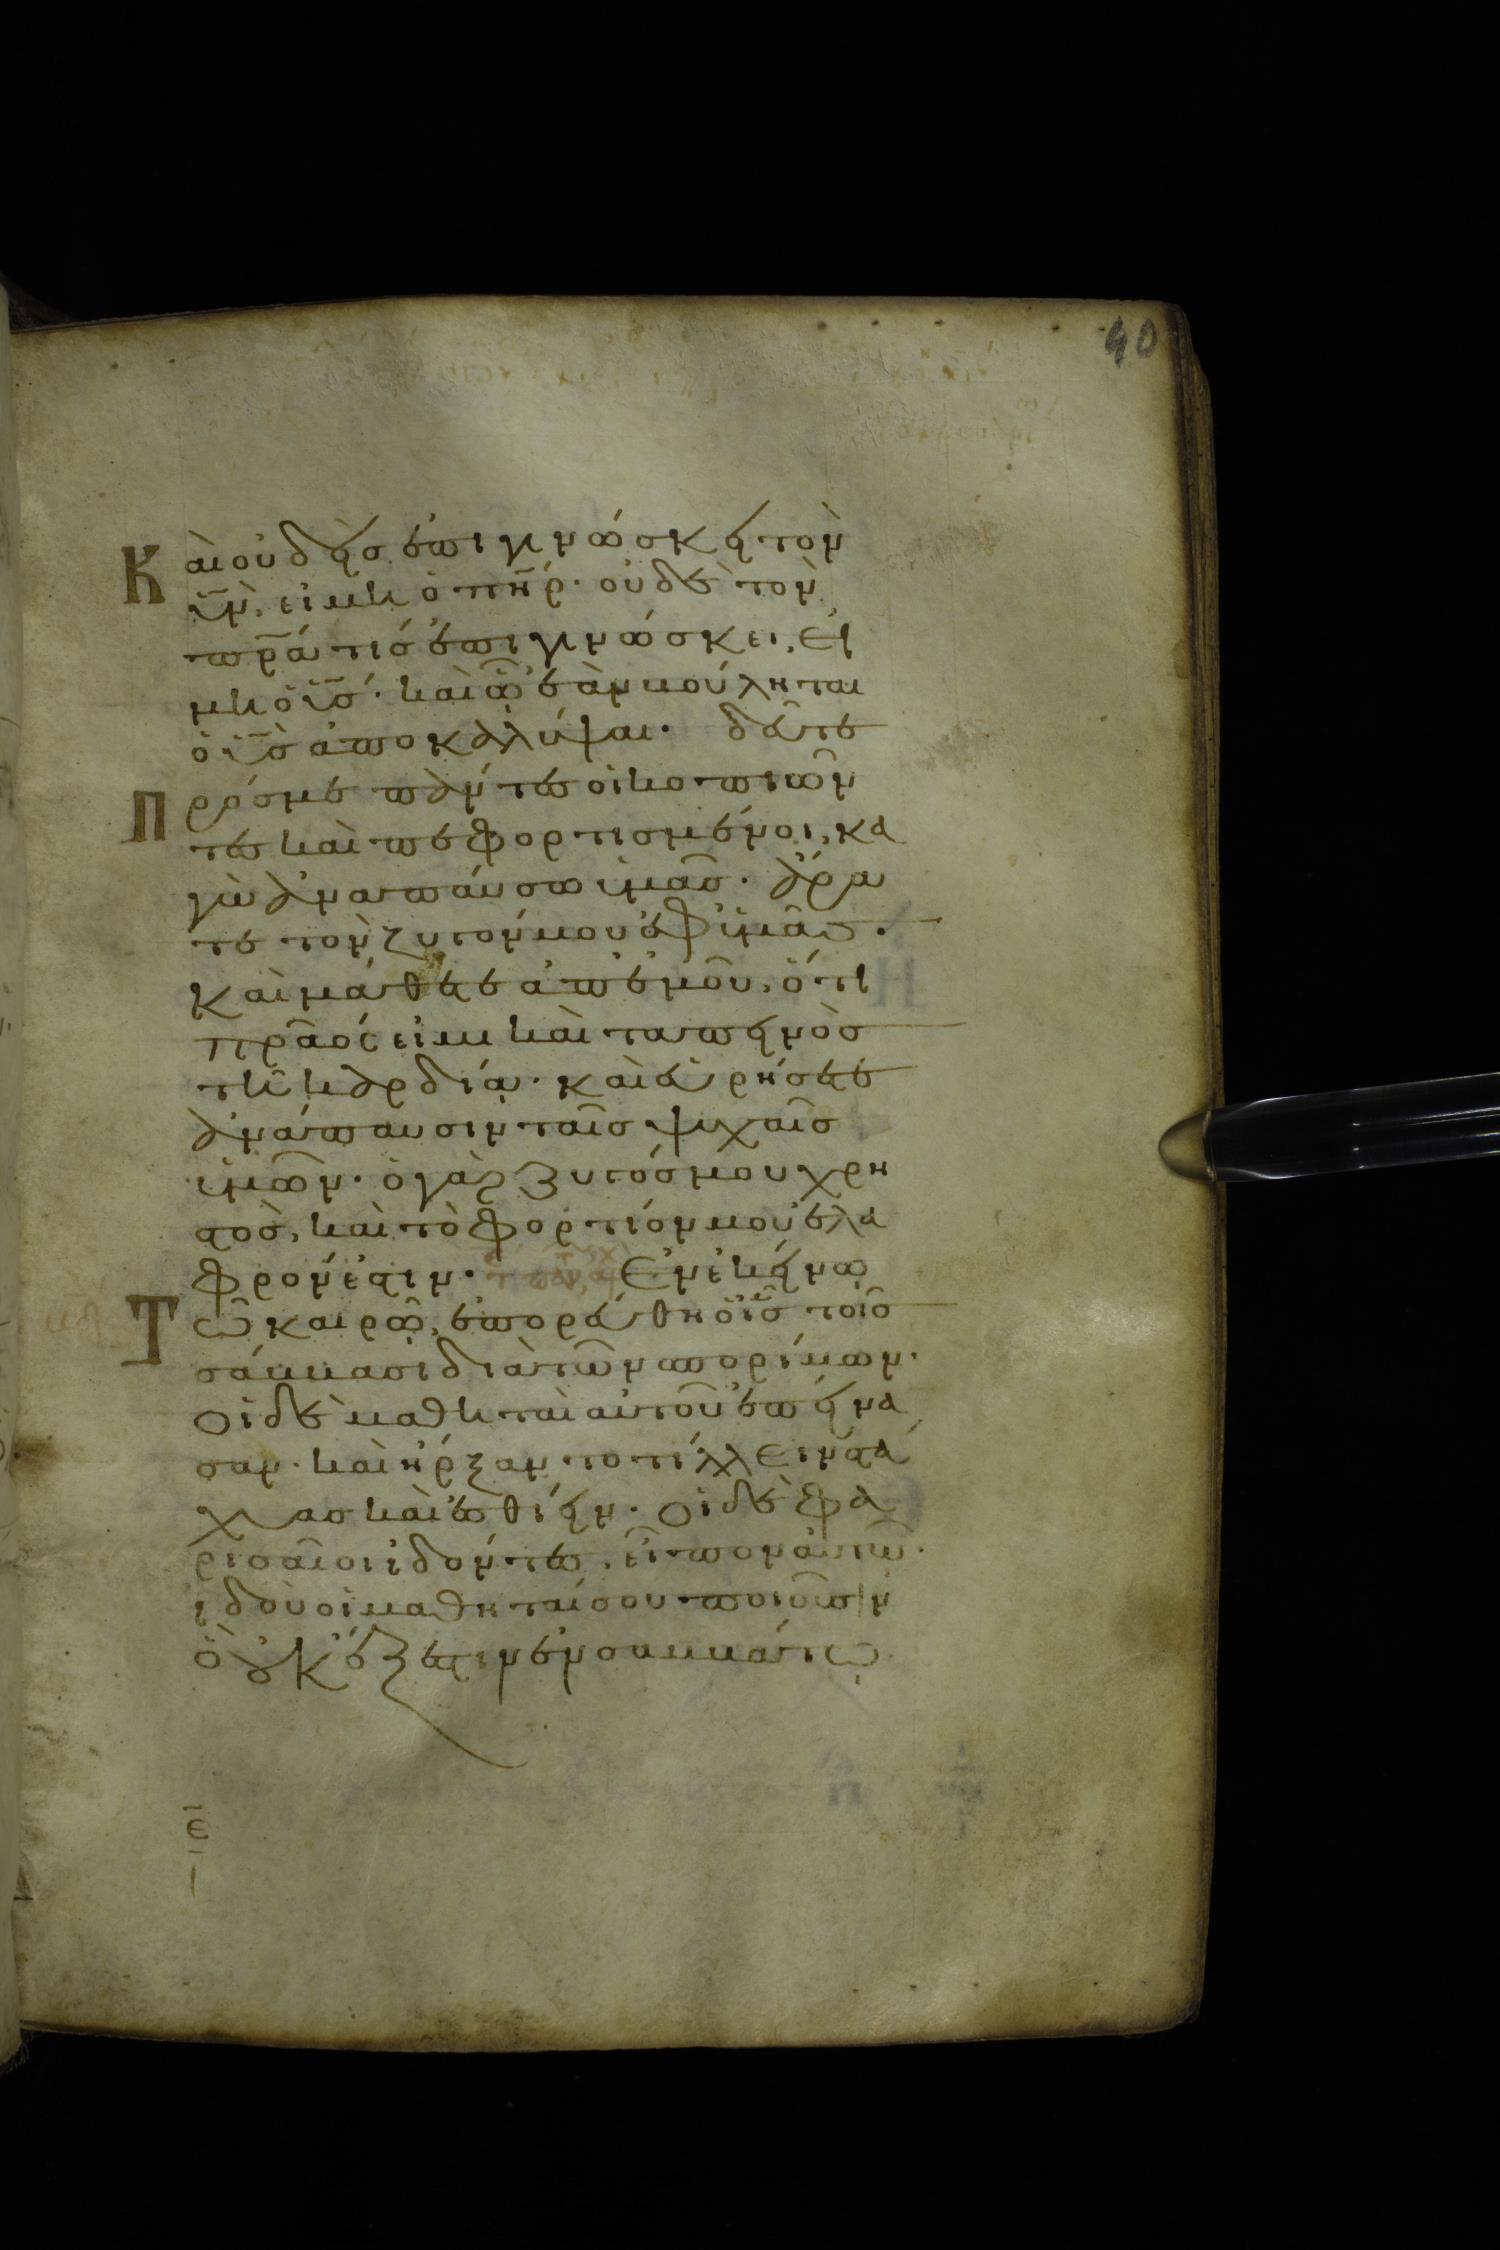 40
Καὶ οὐδεὶς ἐπιγινώσκει τὸν
ῡν̄, εἰ μὴ ὁ π̄η̄ρ̄. οὐδὲ τὸν
π̄ρ̄ᾱ τίς ἐπιγινώσκει, εἰ
μὴ ὁ ῡς̄. καὶ ᾧ ἐὰν βούληται
ὁ ῡς̄ ἀποκαλύψαι. δεῦτε
Πρός με πάντες οἱ κοπιῶν
τες καὶ πεφορτισμένοι, κα
γὼ ἀναπαύσω ὑμᾶς. ἄρα
τε τὸν ζυγόν μου ἐφ' ὑμᾶς.
καὶ μάθετε ἀπ' ἐμοῦ, ὅτι
πρᾶός εἰμι καὶ ταπεινὸς
τῇ καρδίᾳ. καὶ εὑρήσετε
ἀνάπαυσιν ταῖς ψυχαῖς
ὑμῶν. ὁ γὰρ ζυγός μου χρη
στὸς, καὶ τὸ φορτίον μου ἐλα
φρόν ἐστιν. Ἐν ἐκείνῳ
Τῷ καιρῷ, ἐπορεύθη ὁ ῑς̄ τοῖς
σάββασι διὰ τῶν σπορίμων.
οἱ δὲ μαθηταὶ αὐτοῦ ἐπείνα
σαν. καὶ ἤρξαντο τίλλειν στά
χυας καὶ ἐσθίειν. οἱ δὲ φα
ρισαῖοι ἰδόντες, εἶπον αὐτῷ.
ἰδοὺ οἱ μαθηταί σου ποιοῦσιν
ὃ οὐκ ἔξεστιν ἐν σαββάτῳ
ε̄